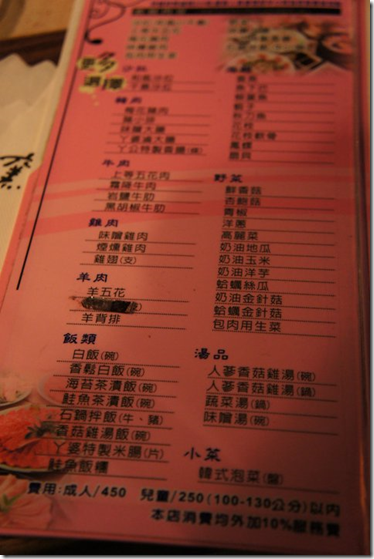 更多
選擇
沙拉
和風沙拉
豬肉
梅花豬肉
味噌大腸
丫公特製香腸(條)
牛肉
上等五花肉
霜降牛肉
岩鹽牛肋
黑胡椒牛肋
雞肉
味噌雞肉
煙燻雞肉
雞翅(支)
羊肉
羊五花
羊背排
飯類
白飯(碗)
香鬆白飯(碗)
海苔茶漬飯(碗)
鮭魚茶漬飯(碗)
石鍋拌飯(牛、豬)
香菇雞湯飯(碗)
丫婆特製米腸(片)
鮭魚飯糰
秋刀魚
花枝
花枝軟骨
鳳螺
扇貝
野菜
鮮香菇
杏鮑菇
青椒
洋蔥
高麗菜
奶油地瓜
奶油玉米
奶油洋芋
蛤蠣絲瓜
奶油金針菇
蛤蠣金針菇
包肉用生菜
湯品
人蔘香菇雞湯(碗)
人蔘香菇雞湯(鍋)
蔬菜湯(鍋)
味噌湯(碗)
小菜
韓式泡菜(盤)
費用:成人/450 兒童/250(100-130公分)以內
本店消費均外加10%服務費